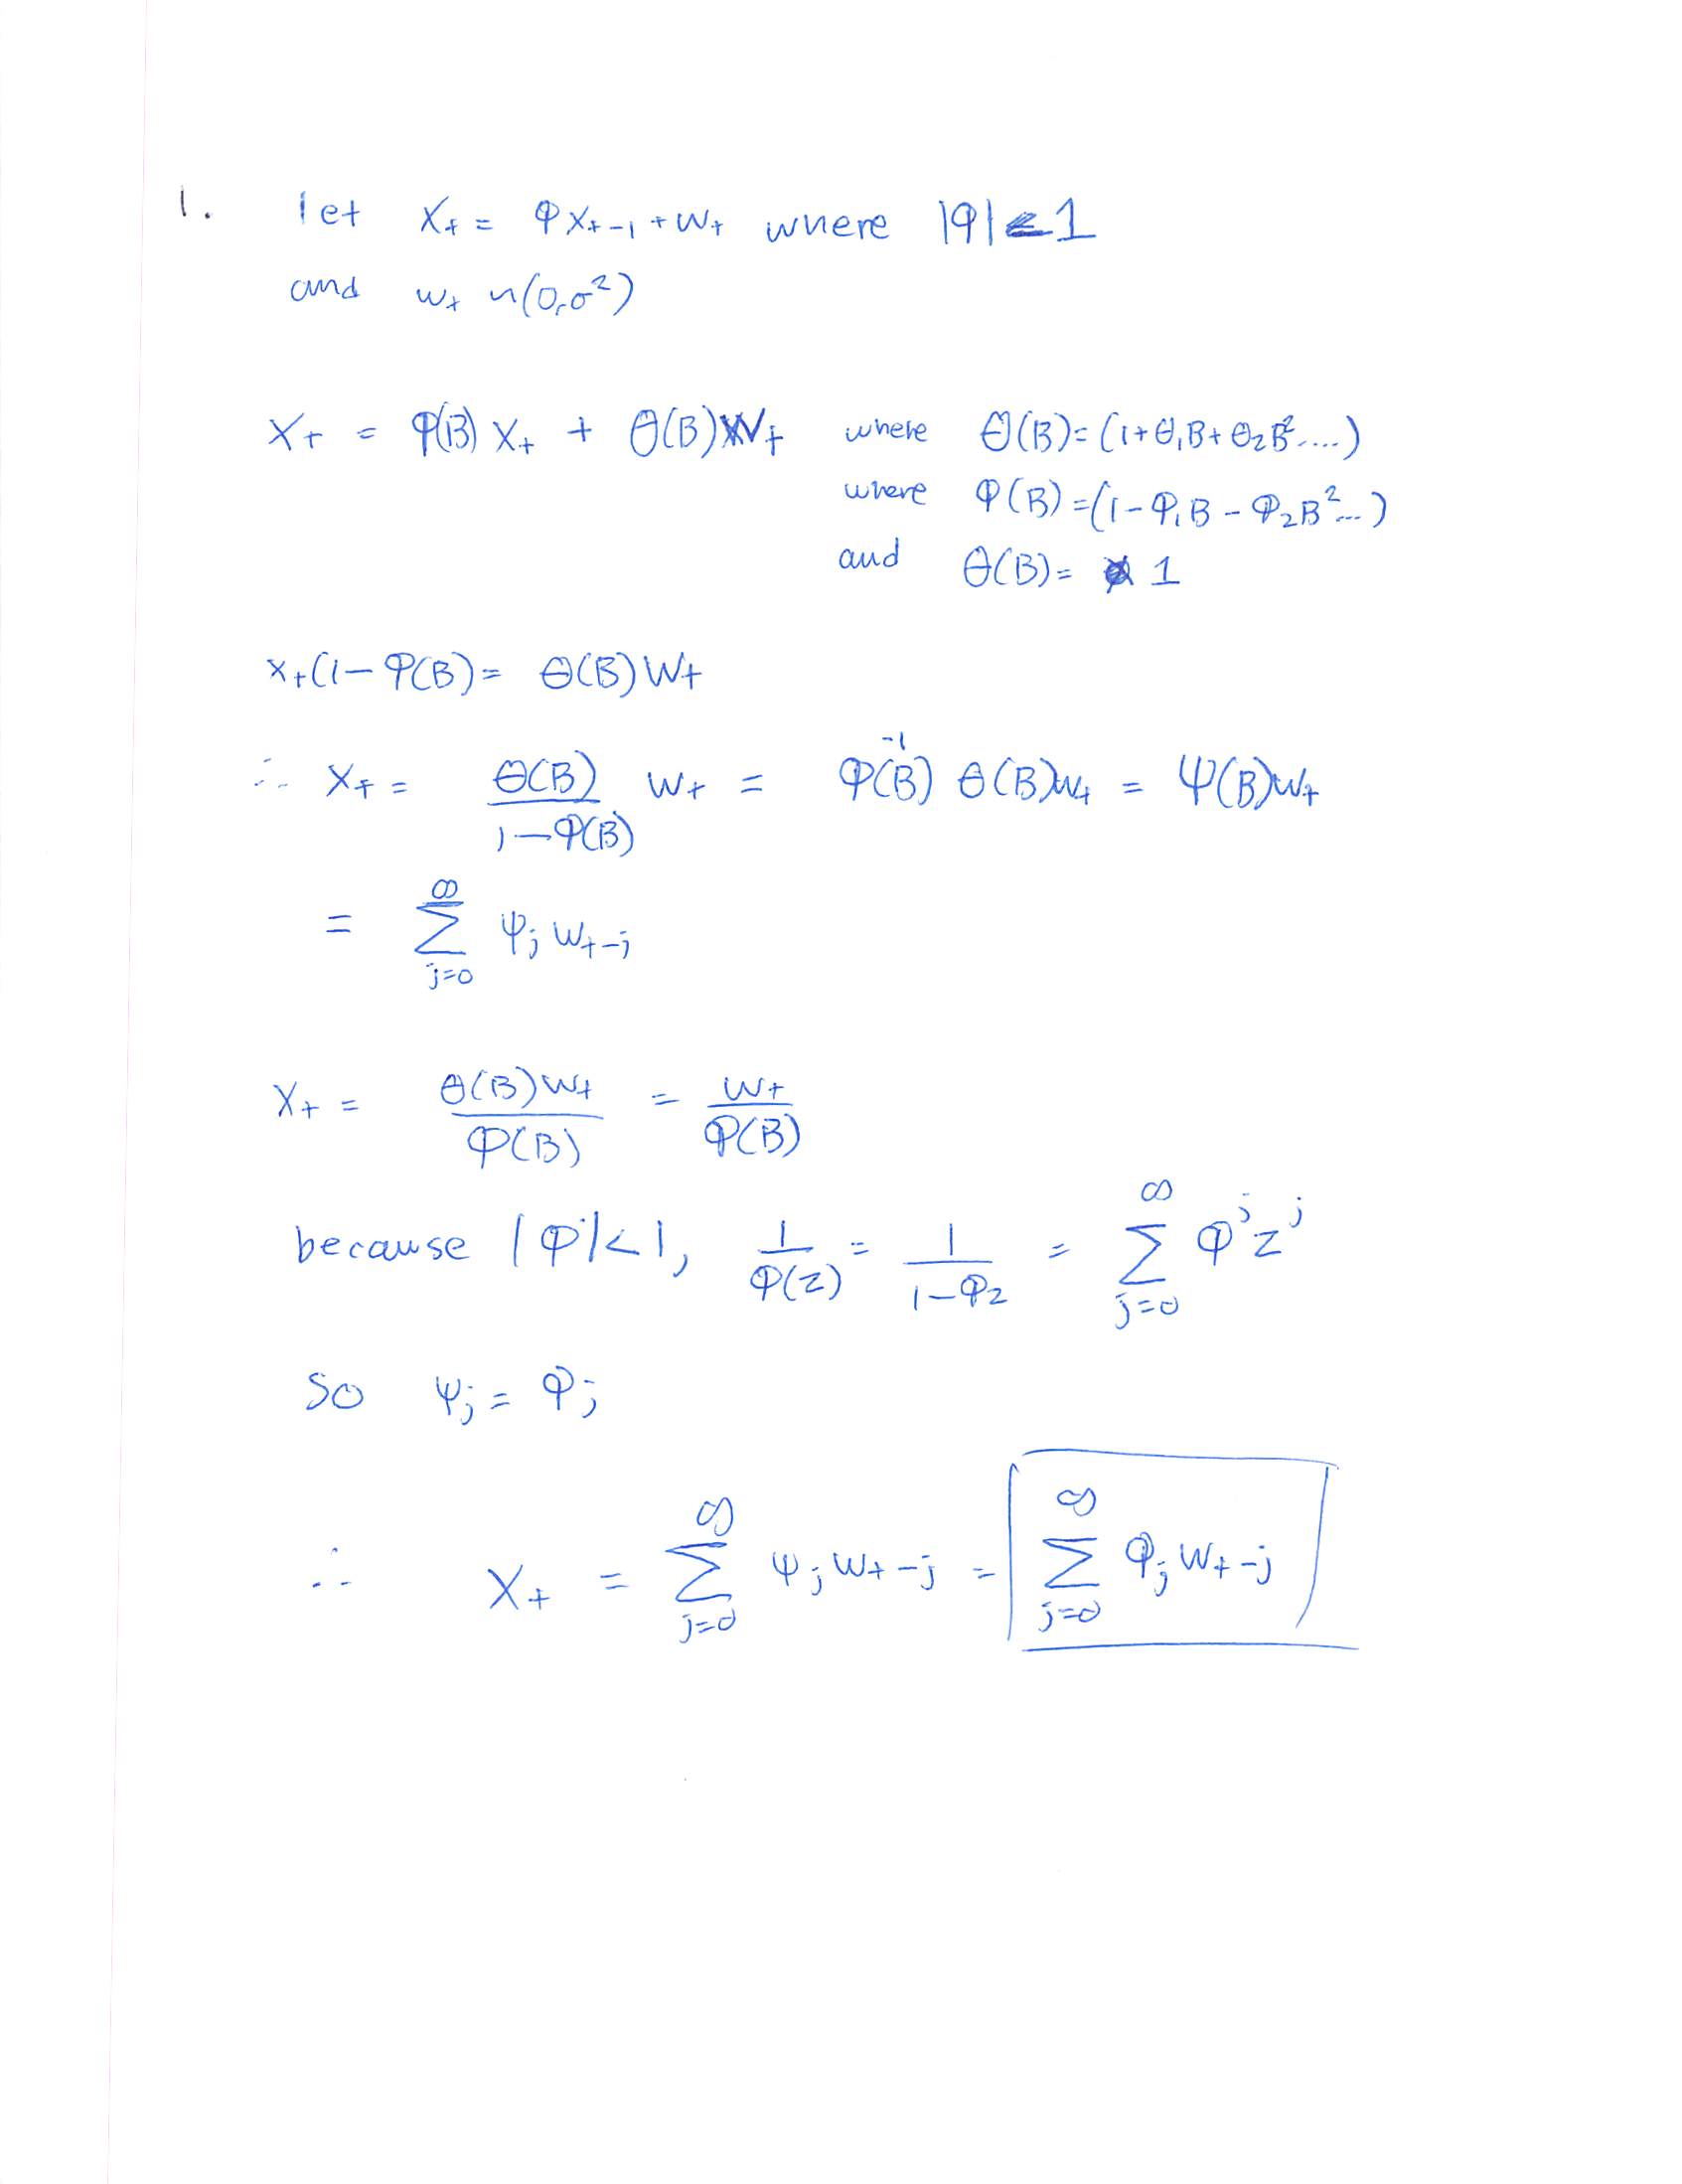 1. let X_t = φX_{t-1} + W_t where |φ| < 1
and w_t ~ n(0, σ²)
X_t = φ(B) X_t + θ(B) W_t where θ(B) = (1 + θ₁B + θ₂B² ....)
where φ(B) = (1 - φ₁B - φ₂B² ...)
and θ(B) = 1
X_t(1 - φ(B) = θ(B) W_t
∴ X_t = θ(B) / 1 - φ(B) W_t = φ⁻¹(B) θ(B) W_t = ψ(B) W_t
= Σ_{j=0}^{∞} ψ_j W_{t-j}
X_t = θ(B) W_t / φ(B) = W_t / φ(B)
because |φ| < 1, 1 / φ(z) = 1 / 1 - φz = Σ_{j=0}^{∞} φ^j z^j
so ψ_j = φ_j
∴ X_t = Σ_{j=0}^{∞} ψ_j W_{t-j} = Σ_{j=0}^{∞} φ_j W_{t-j}